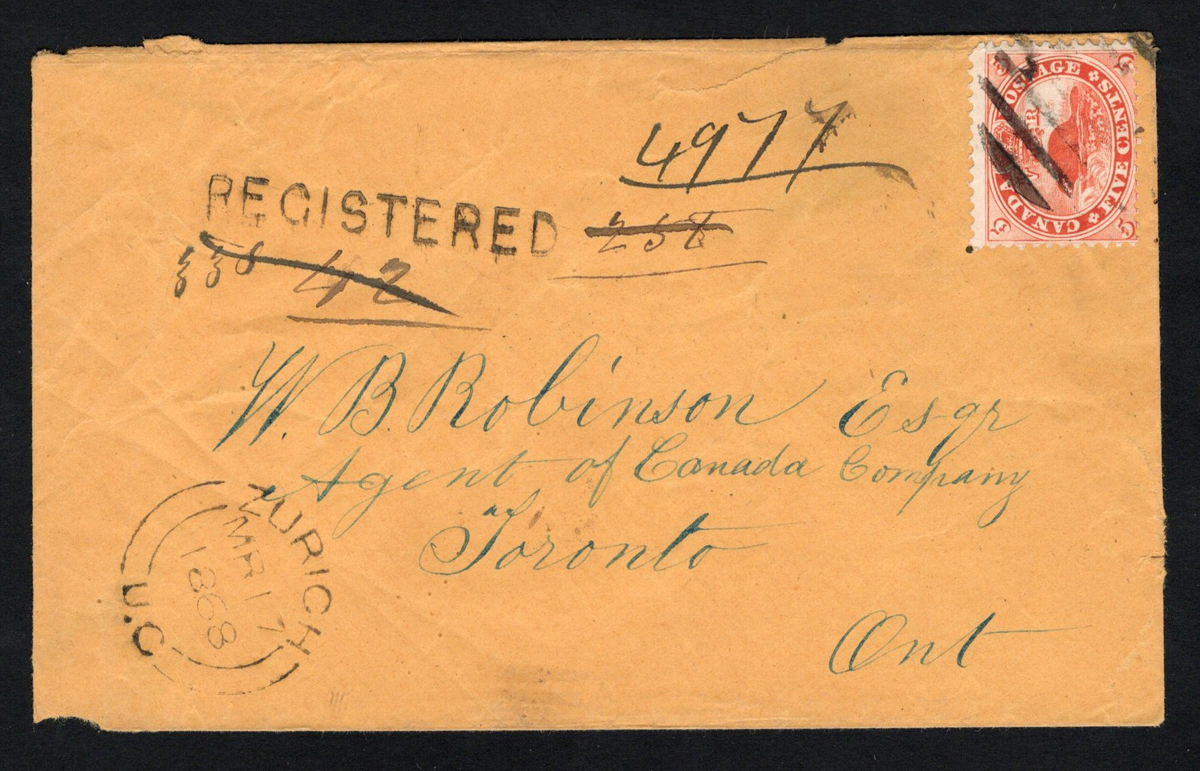 4977
REGISTERED 258
338 42
W. B. Robinson Esqr
Agent of Canada Company
Toronto
Ont
ZURICH
MR 17
1868
U.C
CANADA POSTAGE
FIVE CENTS